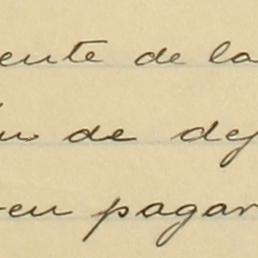 ente de la
de def
en pagar